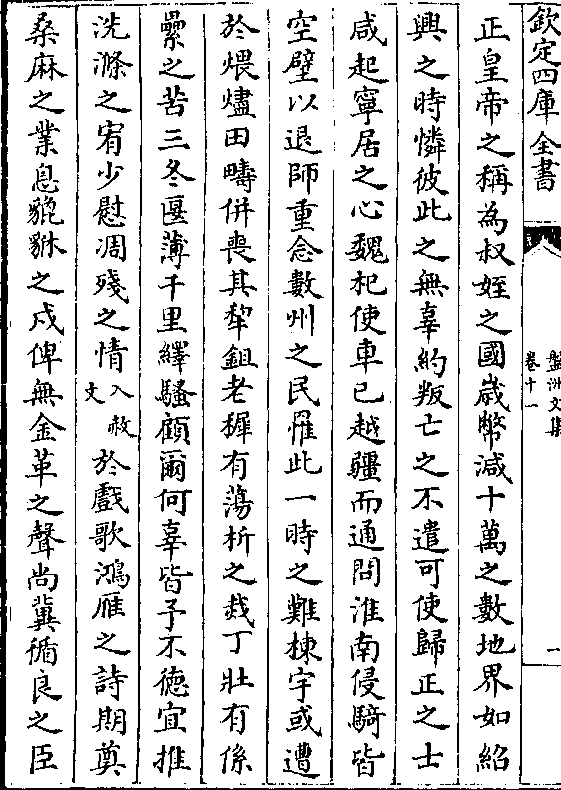 欽定四庫全書
盤洲文集
卷十一
一
正皇帝之稱為叔姪之國歲幣減十萬之數地界如紹
興之時憐彼此之無辜約叛亡之不遣可使歸正之士
咸起寧居之心魏杞使車已越疆而通問淮南侵騎皆
空壁以退師重念數州之民罹此一時之難棟宇或遭
於煨燼田疇併喪其犂鉏老穉有蕩析之烖丁壯有係
纍之苦三冬匽薄千里繹騷顧爾何辜皆予不德宜推
洗滌之宥少慰凋殘之情入赦文於戲歌鴻雁之詩期奠
桑麻之業息貔貅之戍俾無金革之聲尚冀循良之臣